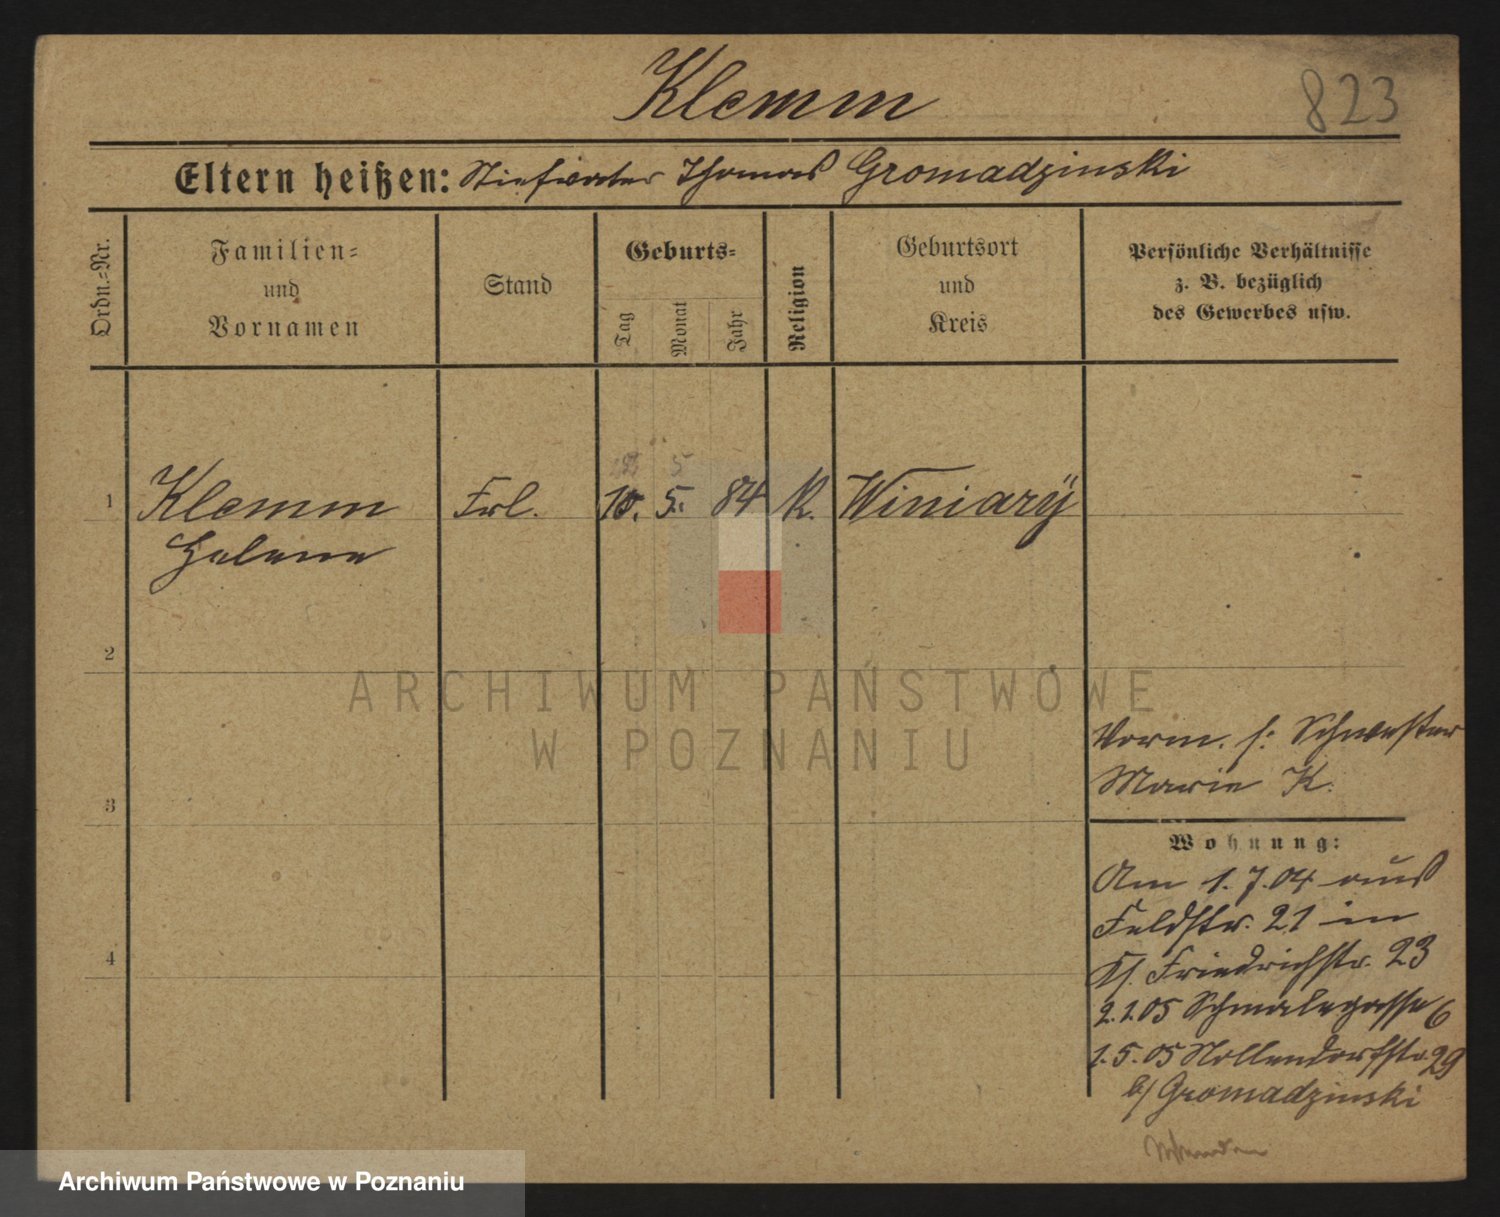 Klemm
823
Eltern heißen: Stiefvater Thomas Gromadzinski
Ordn.=Nr.
Familien=
und
Vornamen
Stand
Geburts=
Tag
Monat
Jahr
Religion
Geburtsort
und
Kreis
Persönliche Verhältnisse
z. B. bezüglich
des Gewerbes usw.
5
1 Klemm Frl. 10. 5. 84 K. Winiary
Helene
2
ARCHIWUM PAŃSTWOWE
W POZNANIU
Vorm. s: Schwester
Marie K.
3
Wohnung:
Am 1.7.04 aus
Feldstr. 21 in
Friedrichstr. 23
4
2.1.05 Schmalegasse 6
1.5.05 Nollendorfstr. 29
b/ Gromadzinski
Archiwum Państwowe w Poznaniu